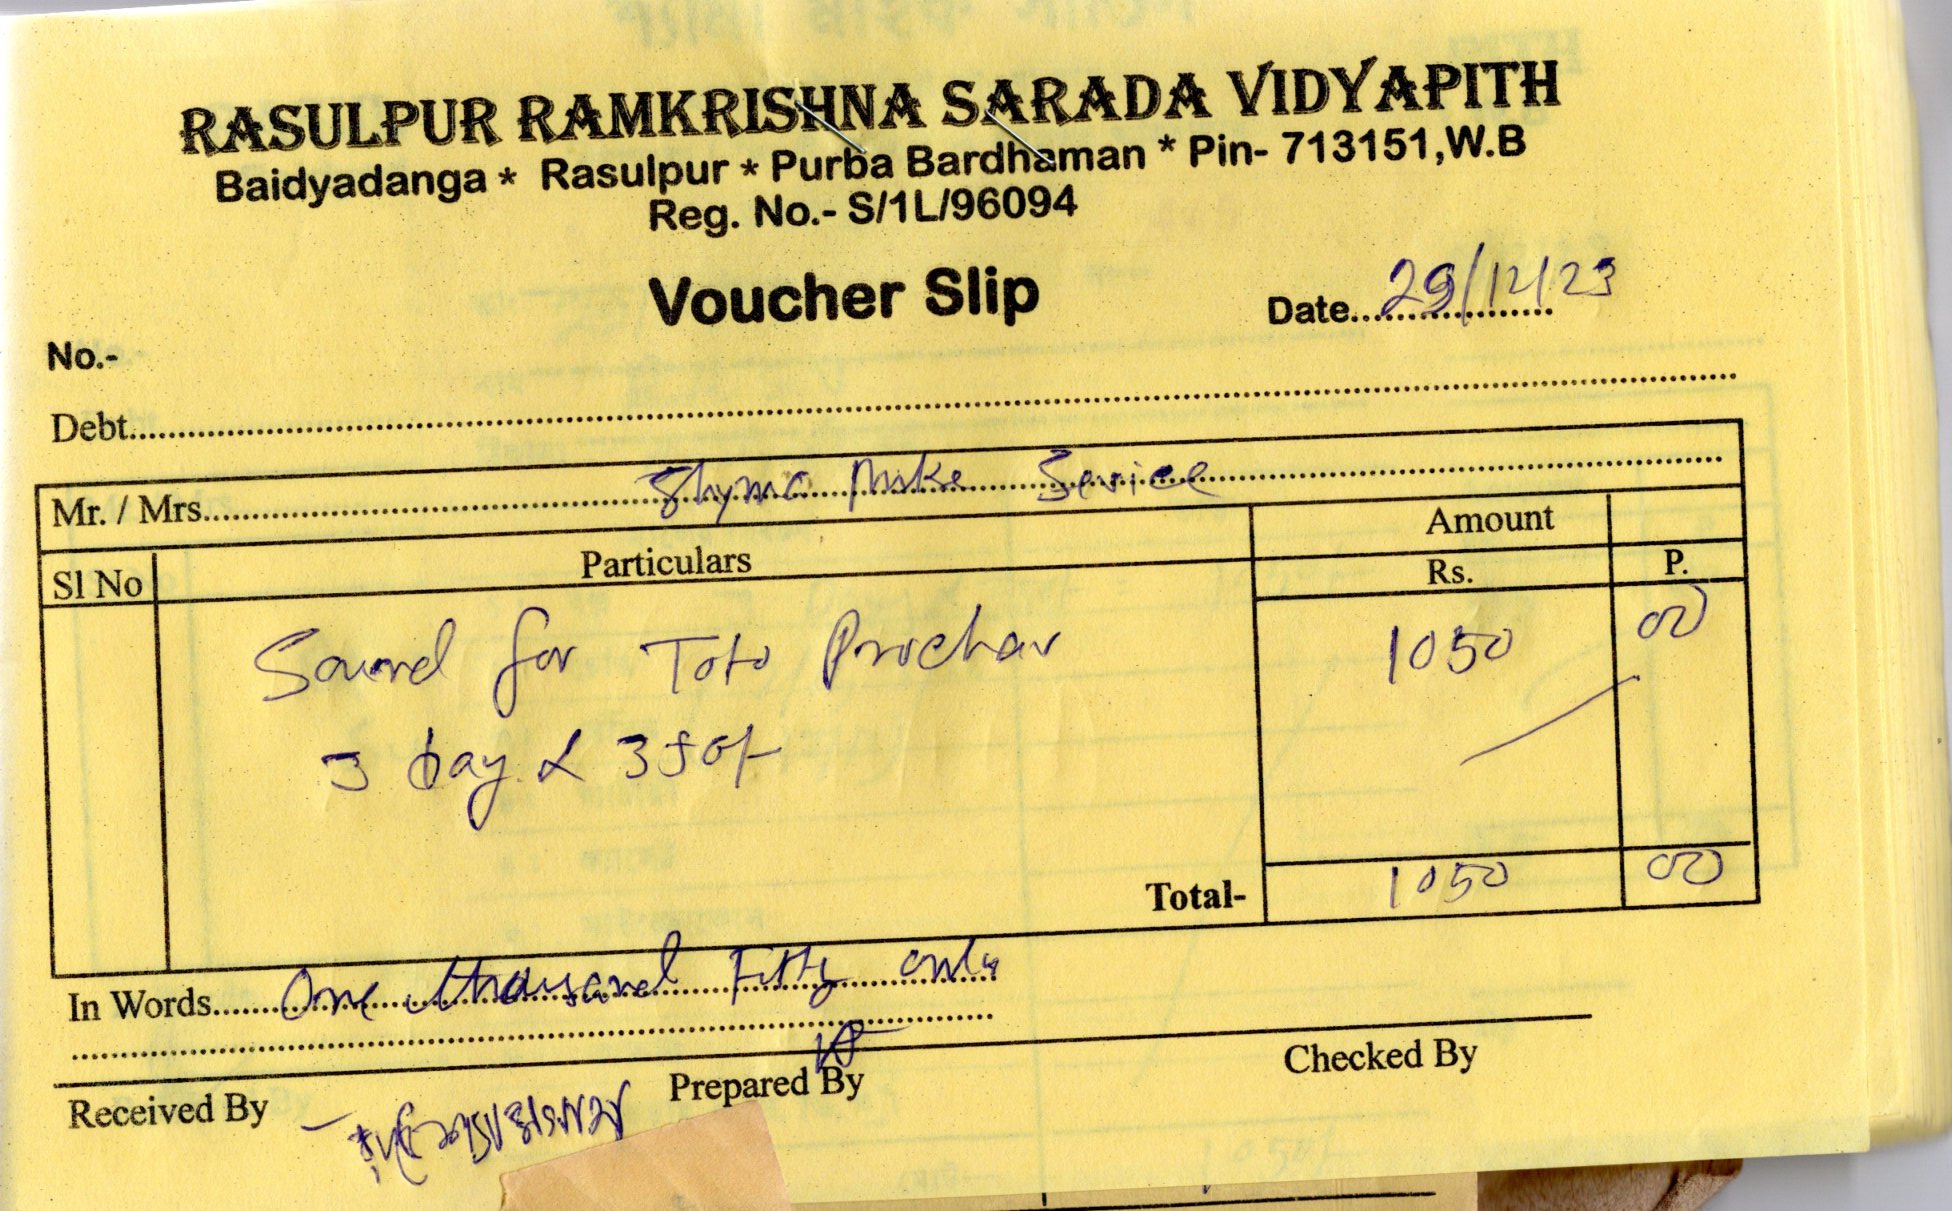 RASULPUR RAMKRISHNA SARADA VIDYAPITH
Baidyadanga * Rasulpur * Purba Bardhaman * Pin- 713151,W.B
Reg. No.- S/1L/96094
Voucher Slip
Date 29/12/23
No.-
Debt
Mr. / Mrs. Shyma Mike Service
Sl No Particulars Amount
Rs. P.
Sound for Toto Prochar 1050 00
3 Day x 350/-
Total- 1050 00
In Words One thousand Fifty only
Received By Prepared By Checked By